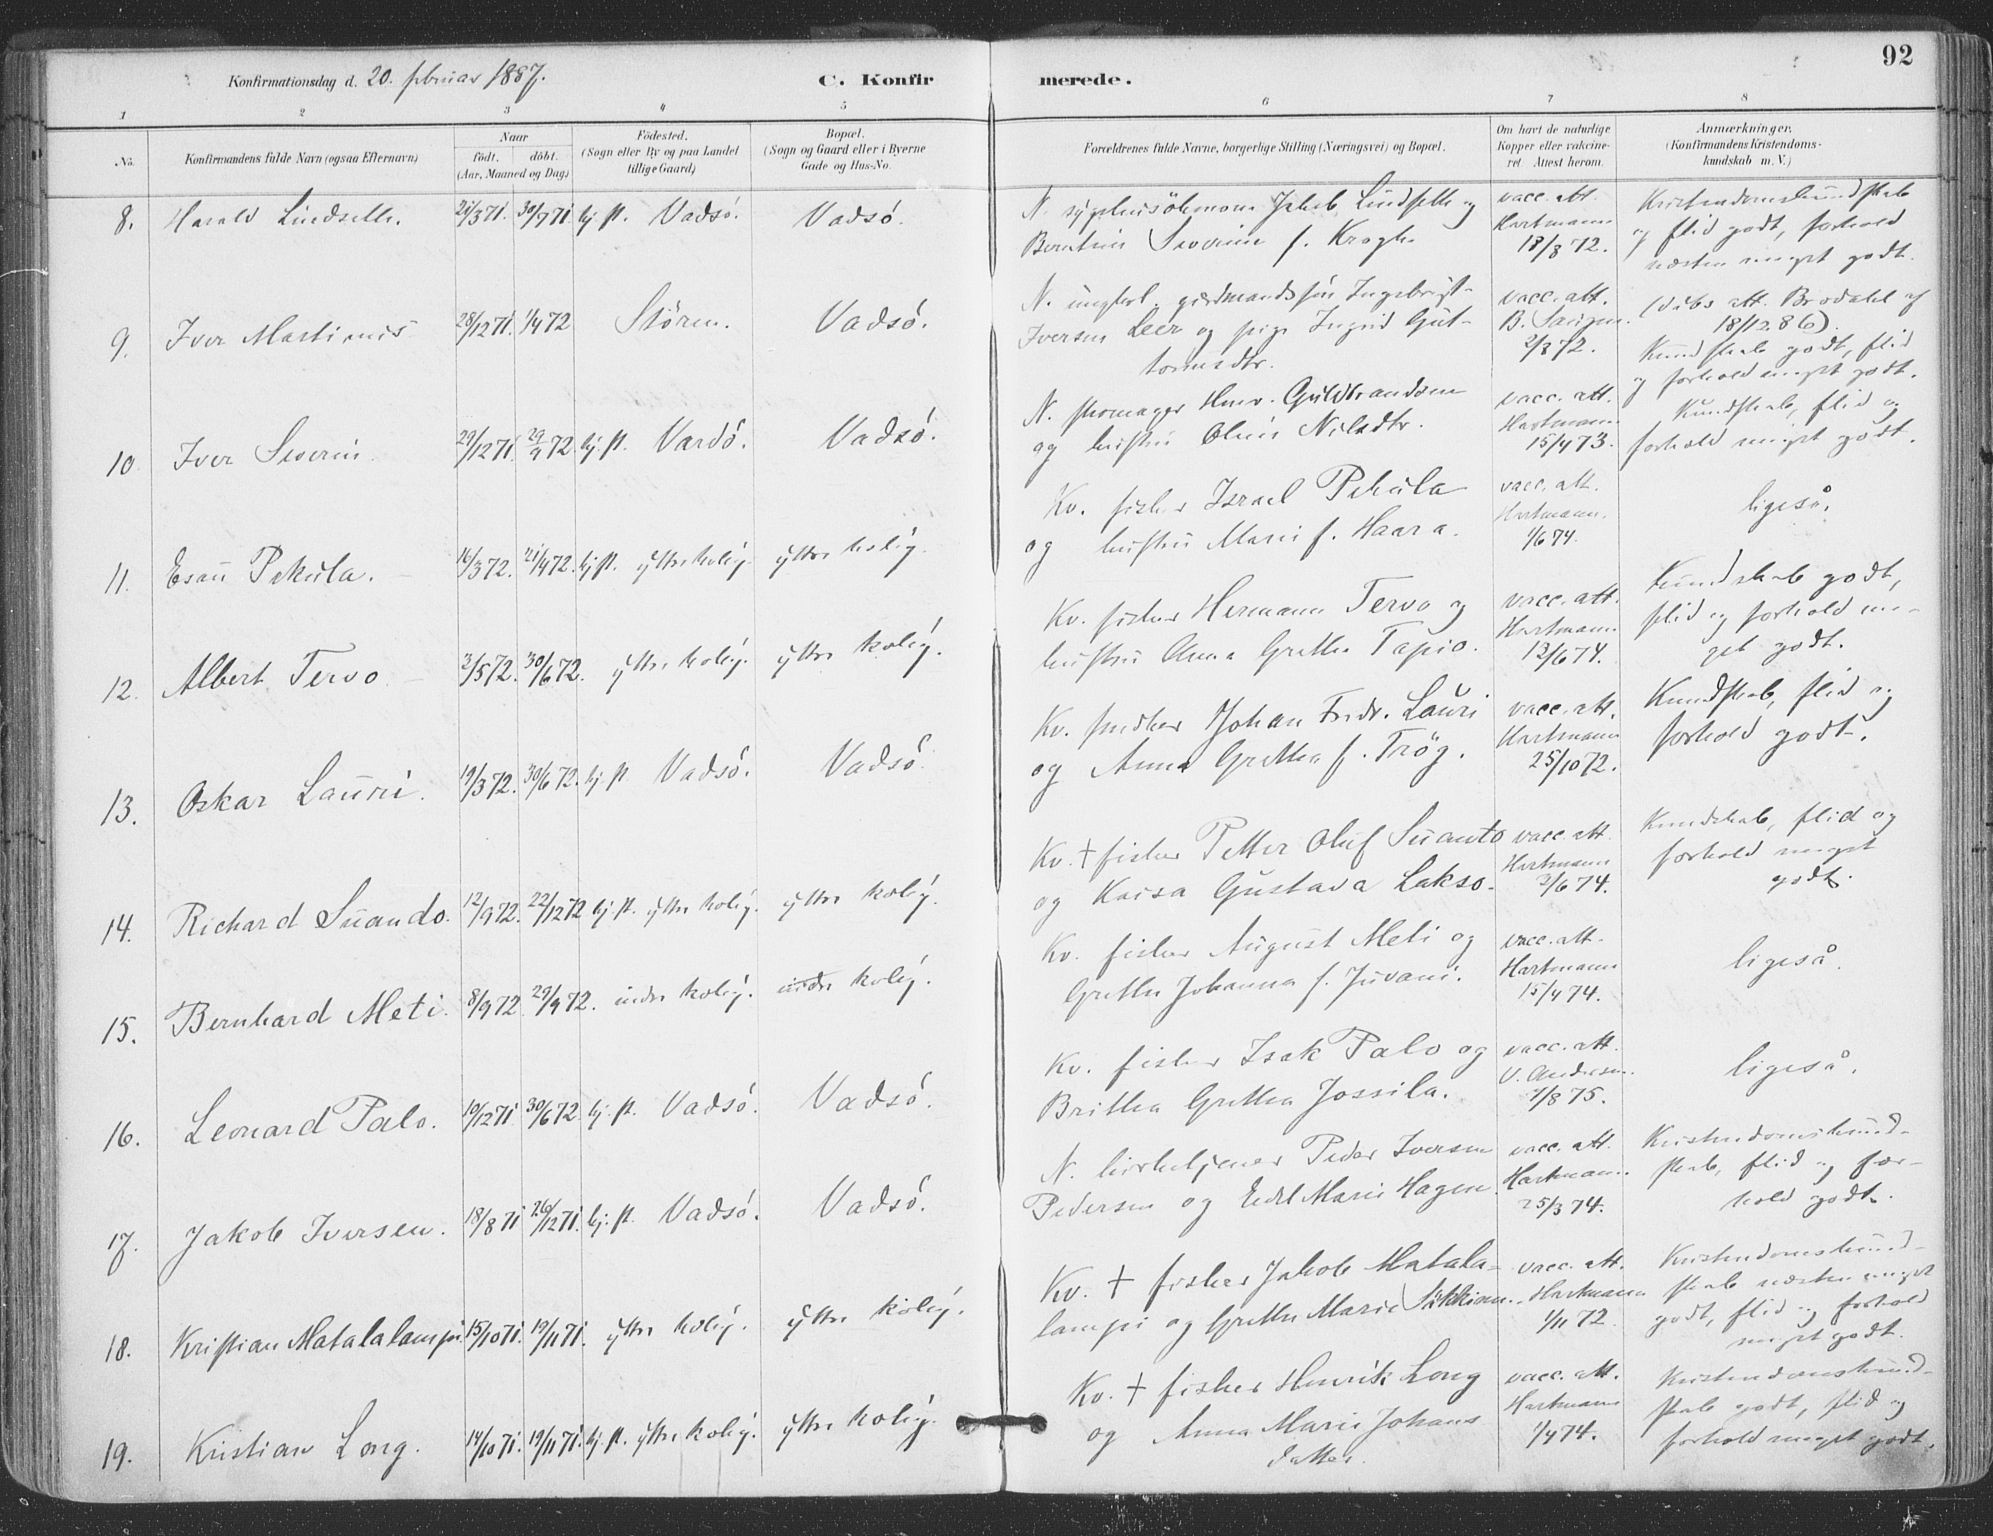 92
Konfirmationsdag d. 20. februar 1887. C. Konfirmerede.
1 2 3 4 5 6 7 8
No. Konfirmandens fulde Navn (ogsaa Efternavn) Naar født. døbt. (Aar, Maaned og Dag) Fødested. (Sogn eller By og paa Landet tillige Gaard) Bopæl. (Sogn og Gaard eller i Byerne Gade og Hus-No. Forældrenes fulde Navne, borgerlige Stilling (Næringsvei) og Bopæl. Om havt de naturlige Kopper eller vakcineret. Attest herom. Anmærkninger. (Konfirmandens Kristendomskundskab m. V.)
8. Harald Lindseth. 21/3 71. 30/7 71. hj. st. Vadsö. Vadsö. N. Jakob Lindseth og vacc. att. Kristendomskundskab
Severine f. Krogh. Hartmann og flid godt, forhold
18/8 72. næsten meget godt.
9. Iver Martinus 28/12 71. 1/4 72 Stören. Vadsö. N. ungkarl, gårdmandssön Ingebrigt vacc. att. (dåbsatt. Brodahl af
Iversen Leer og pige Ingrid Gut- B. 18/12.86).
tormsdtr. 2/8 72. Kundskab godt, flid
og forhold meget godt.
10. Iver Severin. 29/12 71. 29/4 72 hj. st. Vardö. Vadsö. N. skomager Guldbrandsen vacc. att. Kundskab, flid og
og hustru Nilsdtr. Hartmann forhold meget godt.
15/4 73.
11. Esau Pekula. 16/3 72. 21/4 72. hj. st. yttre kolig. yttre kolig. Kv. fisker Israel Pekula vacc. att. ligeså.
og hustru Marie f. Haara. Hartmann.
1/6 74.
12. Albert Tervo. 2/5 72. 30/6 72. yttre kolig. yttre kolig. Kv. fisker Hermann Tervo og vacc. att. Kundskab godt,
hustru Anna Gretha Tapio. Hartmann flid og forhold me-
12/6 74. get godt.
13. Oskar Lauri. 19/3 72. 30/6 72. hj. st. Vadsö. Vadsö Kv. snedker Johan Fredr. Lauri vacc. att. Kundskab, flid og
og Anna Gretha f. Trög. Hartmann forhold godt.
25/10 72.
14. Richard Suando. 12/9 72. 22/12 72 hj. st. yttre kolig. yttre kolig. Kv. † fisker Petter Oluf Suanto vacc. att. Kundskab, flid og
og Kaisa Gustava Lakso. Hartmann forhold meget
3/6 74. godt.
15. Bernhard Meti. 8/9 72 29/9 72. indre kolig. indre kolig. Kv. fisker August Meti og vacc. att. ligeså.
Grethe Johanna f. Juvani. Hartmann
15/4 74.
16. Leonard Palo. 10/12 71 30/6 72 hj. st. Vadsö. Vadsö. Kv. fisker Isak Palo og vacc. att. ligeså.
Britha Gretha Jossila. U. Andersen.
1/8 75.
17. Jakob Iversen. 18/8 71 26/12 71. hj. st. Vadsö. Vadsö. N. kirketjener Peder Iversen vacc. att. Kristendomskund-
Pedersen og Marie Hagen. Hartmann. skab, flid og for-
25/3 74. hold godt.
18. Kristian Matalalampi 15/10 71. 19/11 71. yttre kolig. yttre kolig. Kv. † fisker Jakob Matala- vacc. att. Kristendomskund-
lampi og Grethe Marie Sikkinen. Hartmann skab næsten meget
1/11 72. godt, flid og forhold
meget godt.
19. Kristian Long. 14/10 71. 19/11 71. hj. st. yttre kolig. yttre kolig. Kv. † fisker Henrik Long vacc. att. Kristendomskund-
og Anna Marie Johans Hartmann skab godt, flid og
datter. 1/4 74. forhold meget godt.